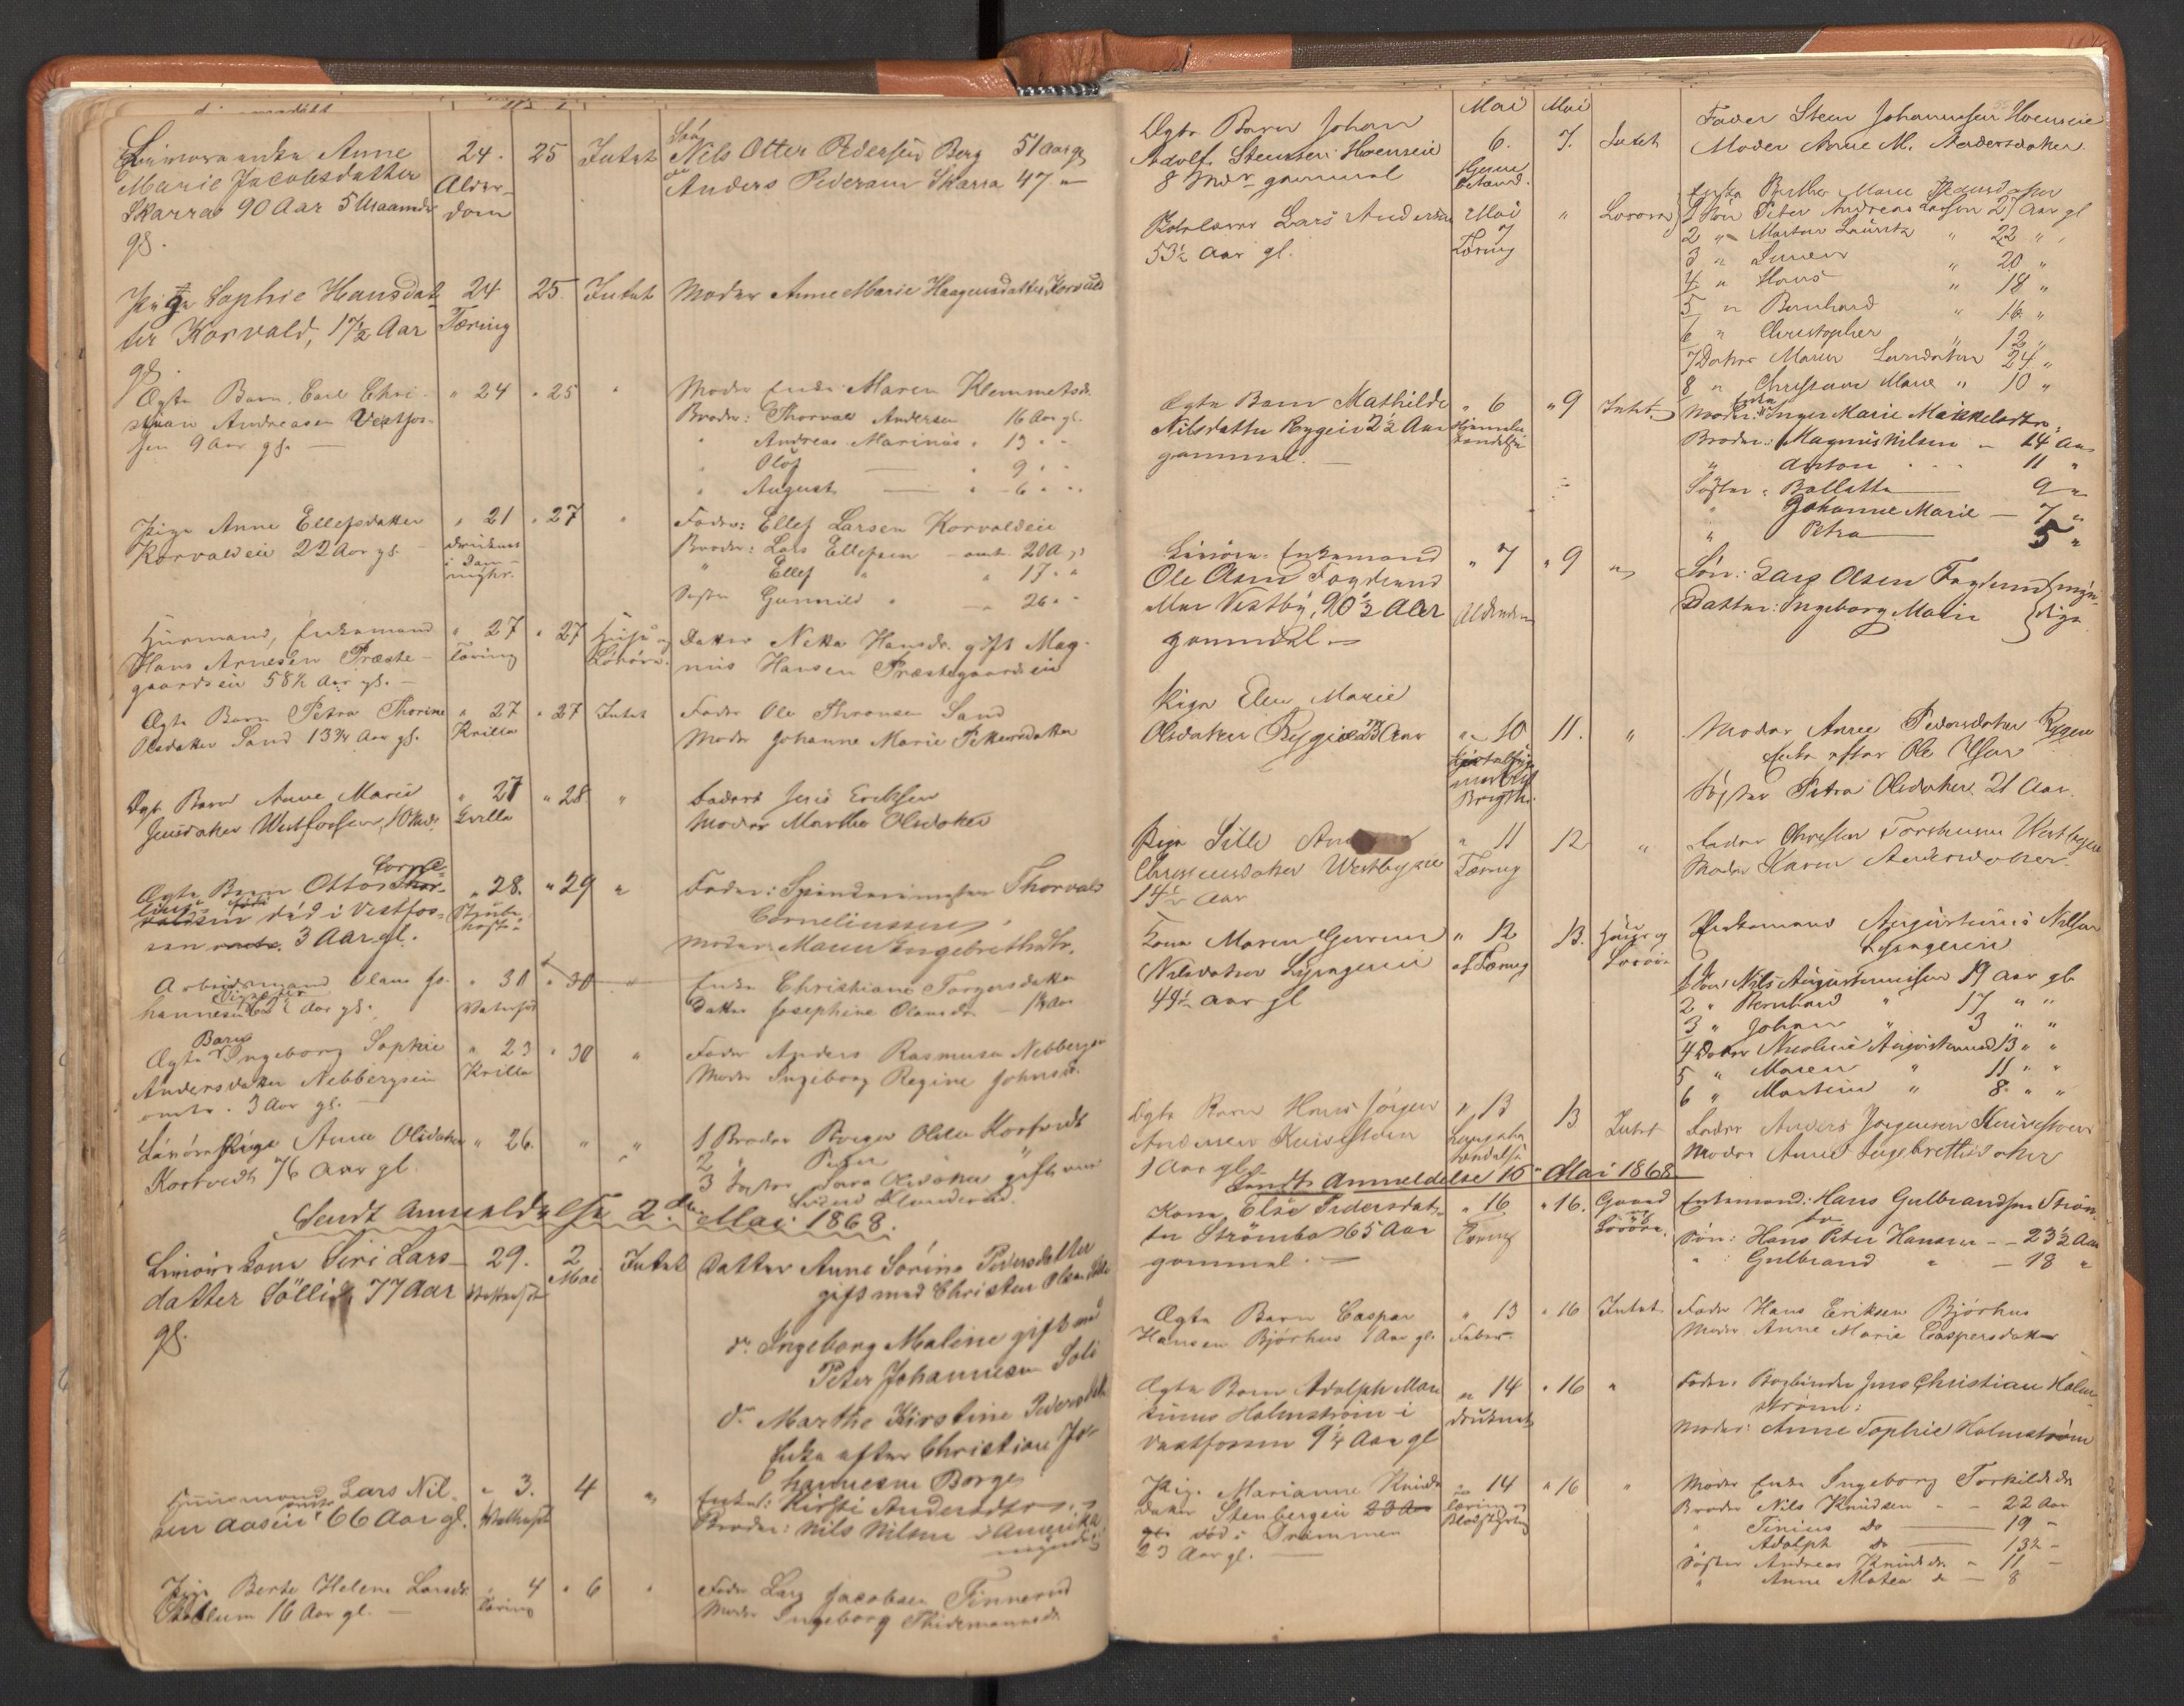 Enke Anne 24. 25 Intet Nils Otter Pedersen Berg 51 aar gl
Marie Jacobsdatter Alder- Anders Pedersen Skarra 47 "
Skarra 90 Aar 5 Maander dom
gl.
Pige Sophie Hansdat 24 25. Intet Moder Anne Marie Haagensdatter Korvald
ter Korvald, 17½ Aar Tæring
gl.
Ægte Barn Carl Chri- " 24 " 25 " Moder Enke Maren Klemmetsdr
stian Andreasen Vestfos- Broder: Thorvald Andersen 16 Aar gl.
sen 9 Aar gl. " Andreas Marinus " 13 " "
" Olof " 9 " "
" August " 6 " "
Pige Anne Ellefsdatter " 21 " 27 " Fader: Ellef Larsen Korvaldeie
Korvaldeie 22 Aar gl. druknet Broder: Lars Ellefsen - omt. 20 A. gl
i Dam- " Ellef " " 17 " "
Søster Gunnild " " 26 " "
Huusmand, Enkemand " 27 " 27 Huus og Datter Netta Hansdr. gift Mag-
Hans Arnesen Præste- Tæring Løsøre. nus Hansen Præstegaardseie
gaardseie 58½ Aar gl.
Ægte Barn Petra Thorine " 27 " 27 Intet Fader Ole Thronsen Sand
Olsdatter Sand 13¾ Aar gl. Krilla Moder Johanne Marie Pettersdatter
Ægt Barn Anne Marie " 27 " 28 " Fader Jens Eriksen
Jensdatter Westfossen Krilla Moder Marthe Olsdatter
Corne-
Ægte Barn Otto Thor- " 28. " 29 " Fader: Spindemester Thorvald
død i Vestfos- Strube- Corneliussen
sen 3 Aar gl. hoste Moder: Maren Engebrethsdr.
Arbeidsmand Olaus Jo- " 30 " 30 " Enke Christiane Torgersdatter
hannesen Aar gl. Vatersot Datter Josephine Olausdr.
Barn
Ægte Ingeborg Sophie " 23 " 30 " Fader Anders Rasmusen Nebbergeie
Andersdatter Nebbergseie Krilla Moder Ingeborg Regine Johnsd.
omtr. 3 Aar gl.
Pige Anne Olsdatter " 26. " " 1 Broder Borger Olsen Kortvedt
Kortvedt 76 Aar gl. 2 " Peter
3 Søster Sara Olsdatter gift med
Sendt Anmeldelse 2den Mai 1868.
Kone Siri Lars- 29. 2 Intet Datter Anne Sørine Pedersdatter
datter Sölli 77 Aar Vattersot Mai gift med Christen Olsen
gl.
do Ingeborg Maline gift med
Peter Johannesen Soli
do Marthe Kirstine Pedersdatter
Enke efter Christian Jo-
hannesen Borge
Huusmand Lars Nil- " 3. 4 " Enke: Kirsti Andersdtr
sen Aaseie 66 Aar gl. Vattersot Broder: Nils Nilsen i Amerika
myndig
Pige Berte Helene Larsdr. " 4 " 6 " Fader Lars Jacobsen Finnerud
16 Aar gl. Tæring Moder Ingeborg Thidemannsdr
Mai Mai
Ægte Barn Johan 6. 7. Intet Fader Steen Johannesen Hoenseie
Adolf Steensen Hoenseie Moder Anne M. Andersdatter
8 Mdr gammel
Lars Andersen Mai " Løsøre Enke Berthe Marie
53½ Aar gl. 7 1 Søn Peter Andreas Larsen 27 Aar gl
Tæring 2 " Martin Lauritz " 22 " "
3 " " 20 "
4 " Hans " 18 "
5 " Bernhard " 16 "
6 " Christopher " 12 "
7 Datter Maren Larsdatter 24 "
8 " Christiane Marie " 10 "
Ægte Barn Mathilde " 6 " 9 Intet Moder: Enke Inger Marie Mikkelsdtr.
Nilsdatter Rygeie 2½ Aar Broder: Magnus Nilsen - 14 Aar
gammel. " Anton 11 "
Søster: Bollette 9 "
" Johanne Marie - 7 "
" Petra 5 "
Enkemand " 7 " 9 " Søn: Lars Olsen Faglund myn-
Ole Olsen Faglund Datter: Ingeborg Marie dige
eller Vestby, 90½ Aar Alderdom
gammel
Pige Elen Marie
Olsdatter Rygeie Aar " 10 11. " Moder Anne Pedersdatter Rygeie
Enke efter Ole Olsen
Søster Petra Olsdatter 21 Aar.
Pige Sille " 11 12 " Fader Christen Torstensen Westbyeie
Christensdatter Westbyeie Tæring Moder Karen Andersdatter
14½ Aar
Kone Maren " 12 13. Huus og Enkemand Augustinus Nilsen
Nilsdatter af Tæring Løsøre
49½ Aar gl 1 Søn Nils Augustinussen 19 Aar gl
2 " Bernhard " 17 " "
3 " Johan " 3 " "
4 Datter Nicoline Augustinusd 13 " "
5 " Maren " 11 " "
6 " Martine " 8 " "
Ægte Barn Hans Jörgen " 13 13 Intet Fader Anders Jörgensen
Andersen Moder Anne Ingebrethsdatter
1 Aar gl.
Sendt Anmeldelse 16 Mai 1868.
Kone Else Pedersdat- " 16. " 16. Gaard Enkemand: Hans Gulbrandsen Ström-
ter Strömbo 65 Aar Tæring og Løsøre. bo
gammel. Søn: Hans Peter Hansen - 23½ Aar
" Gulbrand " - 18 "
Ægte Barn Caspar " 13 " 16 Intet Fader Hans Eriksen Bjørhus
Hansen Bjørhus 1 Aar gl. Feber. Moder Anne Marie Caspersdatter
Ægte Barn Adolph Mar- " 14 " 16 " Fader: Bogbinder Jens Christian Holm-
tinus Holmström i druknet ström:
Vestfossen 9¼ Aar gl Moder: Anne Sophie Holmström
Pige Marianne Knuds- " 14 " 16 " Moder Enke Ingeborg Torkildsdr
datter Stenbergeie 23 Aar Tæring og Broder Nils Knudsen - - 22 Aar
gl. død i Drammen Blodstyrtning " Tinius do 19 -
23 Aar gl. " Adolph do 13½ -
Søster Andrea Knudsdr. - 11 -
" Anne Matea do - 8